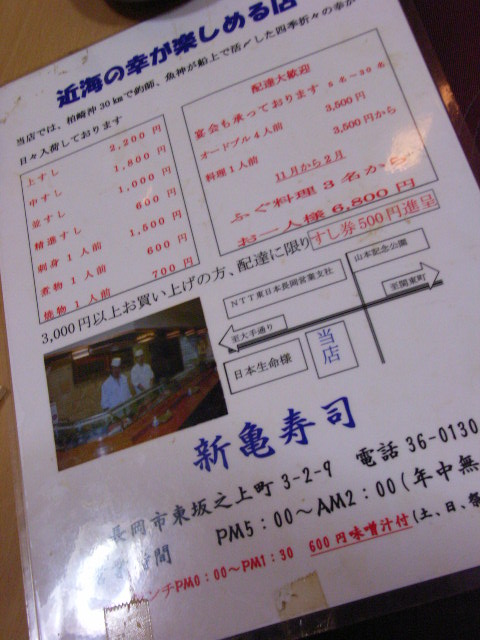 近海の幸が楽しめる店
当店では、柏崎沖30kmで釣師、魚神が船上で活〆した四季折々の幸が
日々入荷しております
上すし 2,200円
中すし 1,800円
並すし 1,000円
精進すし 600円
刺身1人前 1,500円
煮物1人前 600円
焼物1人前 700円
配達大歓迎
宴会も承っております 5名~30名
オードブル4人前 3,500円
料理1人前 3,500円から
11月から2月
ふぐ料理3名から
お一人様6,800円
3,000円以上お買い上げの方、配達に限りすし券500円進呈
NTT東日本長岡営業支社
山本記念公園
至大手通り
至関東町
日本生命様
当店
新亀寿司
長岡市東坂之上町3-2-9 電話36-0130
営業時間 PM5:00~AM2:00(年中無
ランチPM0:00~PM1:30 600円味噌汁付(土、日、祭